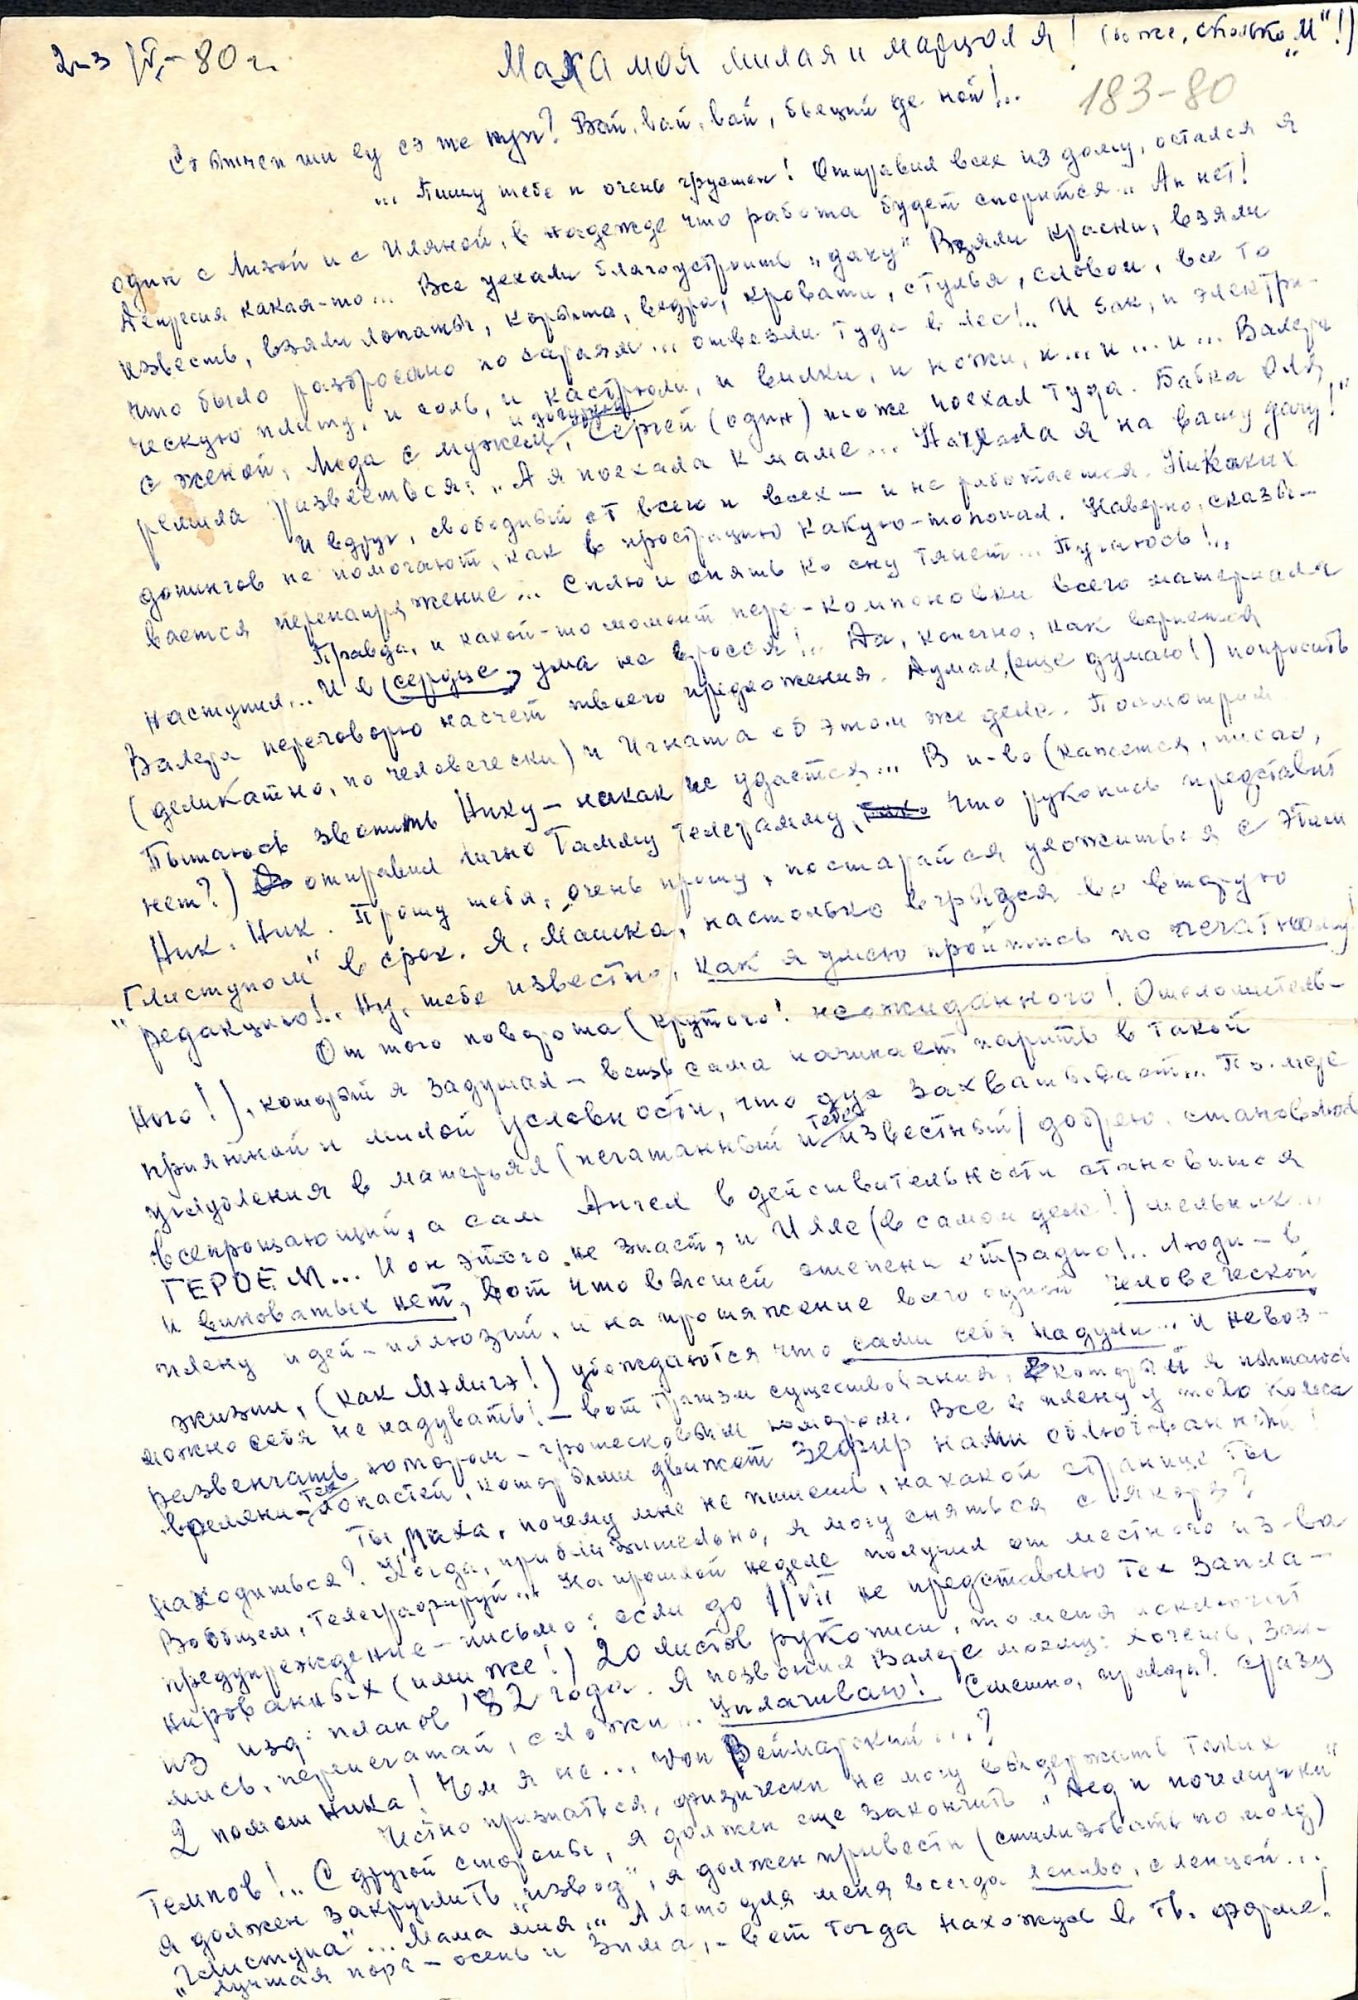 2-3 IV - 80 г. Маха моя милая и марцоля! (Боже, сколько „М"!)
183-80
Вай, вай, вай,
... Пишу тебе и очень грустен! Отправил всех из дому, остался я
один с Лизой и с Иляной, в надежде что работа будет спориться.. Ан нет!
Депресия какая-то... Все уехали благоустроить „дачу" Взяли краски, взяли
известь, взяли лопаты, корыта, ведра, кровати, стулья, словом, все то
что было разбросано по сараям... отвезли туда в лес!.. И бак, и электри-
ческую плиту, и соль, и кастрюли, и вилки, и ножи, и... и... и... Валера
с женой, Люда с мужем, Сергей (один) тоже поехал туда. Бабка Оля
решила развеяться: „А я поехала к маме... Начхала я на вашу дачу!"
И вдруг, свободный от всего и всех — и не работается. Никаких
допингов не помогают, как в прострацию какую-то попал. Наверно, сказы-
вается перенапряжение... Сплю и опять ко сну тянет... Пугаюсь!..
Правда, и какой-то момент пере-компоновки всего материала
наступил... И я (сердце, ума не бросая!.. Да, конечно, как вернется
Валера переговорю насчет твоего предложения. Думал, (еще думаю!) попросить
(деликатно, по человечески) и Игната об этом же деле. Посмотрим
Пытаюсь звонить Нику — никак не удается... В и-во (кажется, писал,
нет?) отправил лично Гамму телеграмму, что рукопись представит
Ник. Ник. Прошу тебя, очень прошу, постарайся уложиться с этим
"Глистуном" в срок. Я, Машка, настолько вгрызся во вторую
редакцию!.. Ну, тебе известно, как я умею пройтись по печатному!
От того поворота (крутого! неожиданного! Ошеломитель-
ного!), который я задумал — вещь сама начинает парить в такой
приятной и милой условности, что дух захватывает... По мере
углубления в матерьял (печатанный и тебе известный) добрею, становлюсь
всепрощающий, а сам Ангел в действительности становится
ГЕРОЕМ... И он этого не знает, и Илле (в самом деле!) мельник...
и виноватых нет, вот что в высшей степени отрадно!.. Люди — в
плену идей-иллюзий, и на протяжение всего одной человеческой
жизни, (как Мэлигэ!) убеждаются что сами себя надули... и невоз-
можно себя не надувать! — вот трагизм существования, который я пытаюсь
развенчать юмором — гротесковым юмором. Все в плену у того колеса
времени — тех лопастей, которыми движет Зефир нами облюбованный!
Ты, Маха, почему мне не пишешь, на какой странице ты
находишься? Когда, приблизительно, я могу сняться с якоря?
Вообщем, телеграфируй... На прошлой неделе получил от местного из-ва
предупреждение-письмо: если до 1/VII не представлю тех запла-
нированных (ими же!) 20 листов рукописи, то меня исключит
из изд. планов '82 года. Я позвонил Валере моему: хочешь, зай-
мись, перепечатай, сложи... Уплачиваю! Смешно, правда? Сразу
2 помощника! Чем я не... Фон Веймарский...?
Честно признаться, физически не могу выдержать таких
темпов!.. С другой стороны, я должен еще закончить „Дед и почемучки"
я должен закруглить „извод", я должен привести (стилизовать по молд)
„Глистуна"... Мама миа.. А лето для меня всегда лениво, с ленцой...
Лучшая пора — осень и зима, — вот тогда нахожусь в тв. форме!